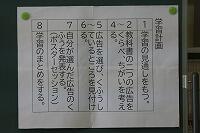 学習計画
１学習の見通しをもつ。
２教科書の二つの広告を
～くらべ、ちがいを考え
４る。
５広告を選び、くふうし
～ているところを見付け
６る。
７自分が選んだ広告のく
ふうを発表する。
（ポスターセッション）
８学習のまとめをする。